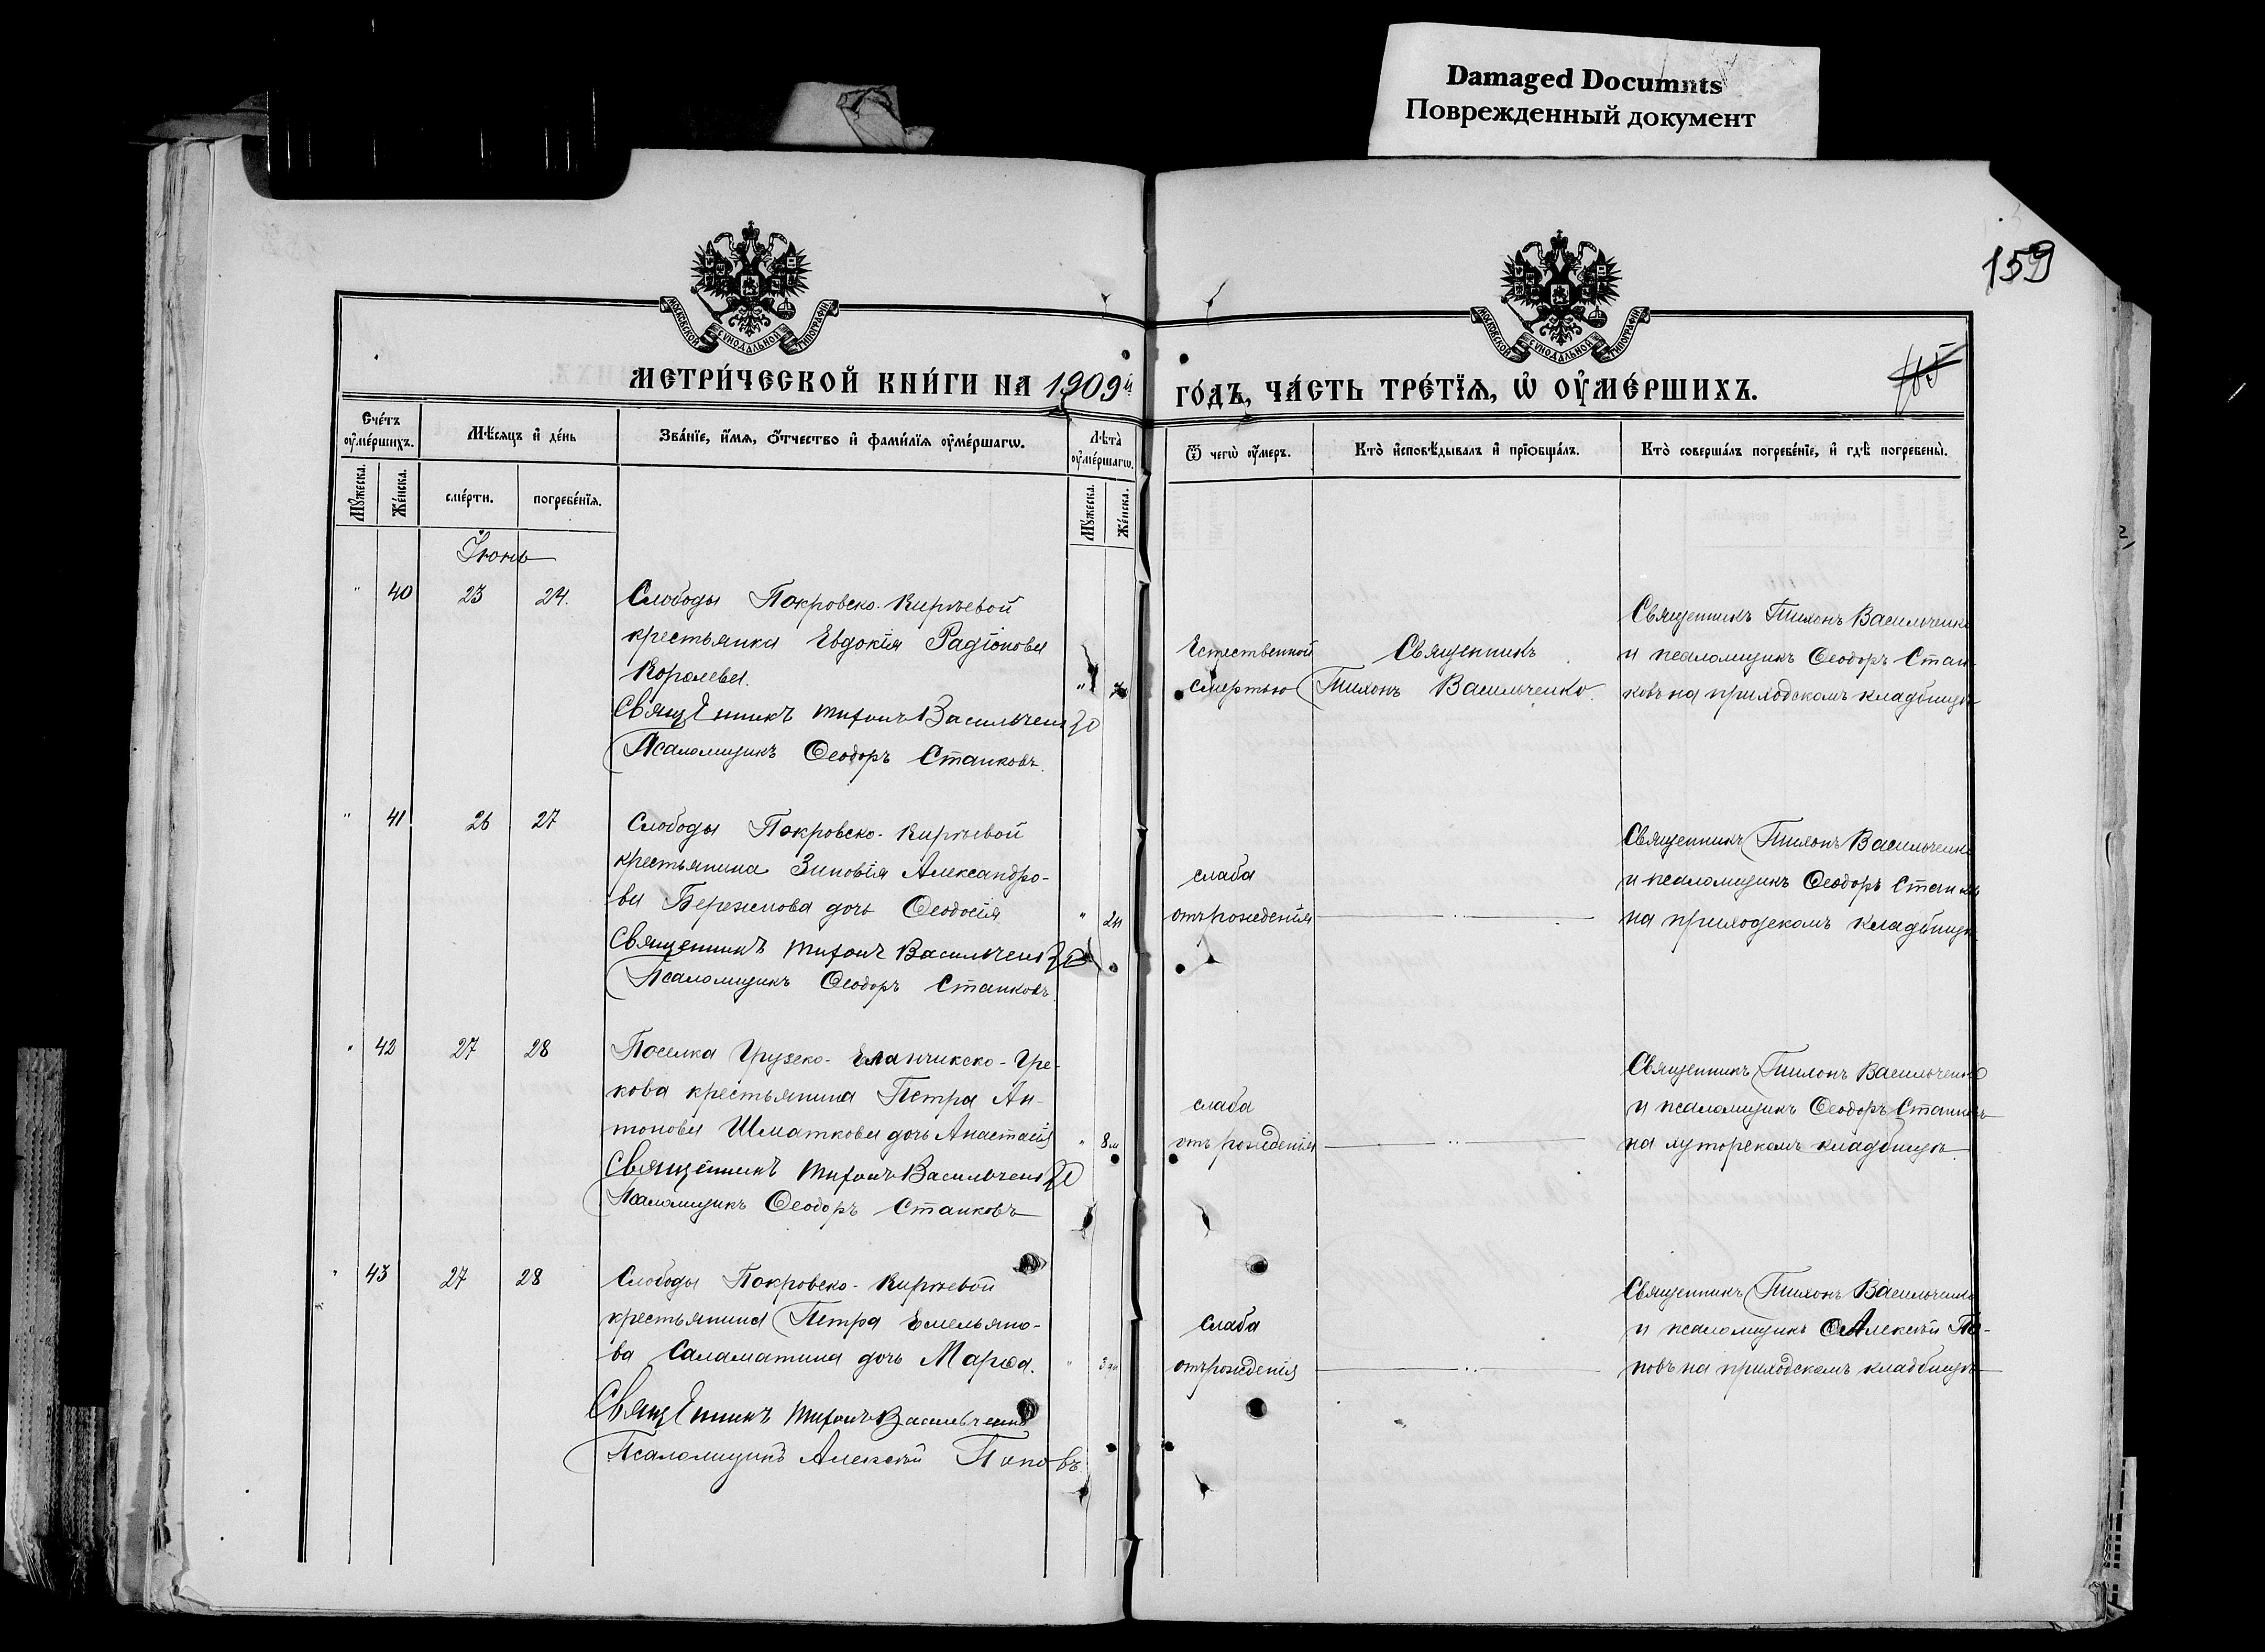 Damaged Documnts
Поврежденный документ
159
МОСКОВСКОЙ СѴНОДАЛЬНОЙ ТИПОГРАФІИ
МОСКОВСКОЙ СѴНОДАЛЬНОЙ ТИПОГРАФІИ
МЕТРИ́ЧЕСКОЙ КНИ́ГИ НА 1909й ГО́ДЪ, ЧА́СТЬ ТРЕ́ТЇѦ, Ѡ҆ ОУ҆МЕ́РШИХЪ.
Сче́тъ оу҆ме́ршихъ.
Мꙋ́жеска.
Же́нска.
Мѣ́сяцъ и҆ де́нь
сме́рти.
погребе́нїѧ.
Зва́нїе, и҆́мѧ, ѻ҆́тчество и҆ фами́лїѧ оу҆ме́ршагѡ.
Лѣ́та оу҆ме́ршагѡ.
Мꙋ́жеска.
Же́нска.
Ѿ чегѡ̀ оу҆́меръ.
Кто̀ и҆сповѣ́дывалъ и҆ прїѡбща́лъ.
Кто̀ соверша́лъ погребе́нїе, и҆ гдѣ̀ погребены̀.
Іюнь
" 40 23 24.
Слободы Покровско-Кирѣевой
крестьянка Евдокія Радіонова
Королева.
Священникъ Тихонъ Васильченко
Псаломщикъ Ѳеодоръ Станковъ.
Естественной
смертью
Священникъ
Тихонъ Васильченко.
Священникъ Тихонъ Васильченко
и псаломщикъ Ѳеодоръ Стан-
ковъ на приходскомъ кладбищѣ
" 41 26 27
Слободы Покровско-Кирѣевой
крестьянина Зиновія Александро-
ва Бережнова дочь Ѳеодосія
Священникъ Тихонъ Васильченко
Псаломщикъ Ѳеодоръ Станковъ.
слаба
отъ рожденія
Священникъ Тихонъ Васильченко
и псаломщикъ Ѳеодоръ Станковъ
на приходскомъ кладбищѣ
" 42 27 28
Поселка Грузско-Еланчикско-Гре-
кова крестьянина Петра Ан-
тонова Шматкова дочь Анастасія
" 8м
Священникъ Тихонъ Васильченко
Псаломщикъ Ѳеодоръ Станковъ
слаба
отъ рожденія
Священникъ Тихонъ Васильченко
и псаломщикъ Ѳеодоръ Станковъ
на хуторскомъ кладбищѣ.
" 43 27 28
Слободы Покровско-Кирѣевой
крестьянина Петра Емельяно-
ва Саламатина дочь Марѳа.
Священникъ Тихонъ Васильченко
Псаломщикъ Алексѣй Поповъ
слаба
отъ рожденія
Священникъ Тихонъ Васильченко
и псаломщикъ Алексѣй По-
повъ на приходскомъ кладбищѣ